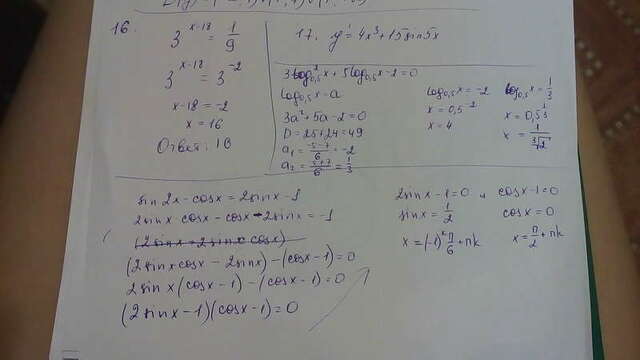 16.
3^{x-18} = \frac{1}{9}
3^{x-18} = 3^{-2}
x-18=-2
x=16
Ответ: 16
17. y' = 4x^3 + 15 sin5x
3log²_{0,5}x + 5log_{0,5}x - 2 = 0
log_{0,5}x = a
3a² + 5a - 2 = 0
D = 25 + 24 = 49
a_1 = \frac{-5-7}{6} = -2
a_2 = \frac{-5+7}{6} = \frac{1}{3}
log_{0,5}x = -2
x = 0,5^{-2}
x = 4
log_{0,5}x = \frac{1}{3}
x = 0,5^{\frac{1}{3}}
x = \frac{1}{\sqrt[3]{2}}
sin2x - cosx = 2sinx - 1
2sinx·cosx - cosx - 2sinx = -1
(2sinxcosx - 2sinx) - (cosx - 1) = 0
2sinx(cosx - 1) - (cosx - 1) = 0
(2sinx - 1)(cosx - 1) = 0
2sinx - 1 = 0 и cosx - 1 = 0
sinx = \frac{1}{2} cosx = 0
x = (-1)^k \frac{π}{6} + πk x = \frac{π}{2} + πk